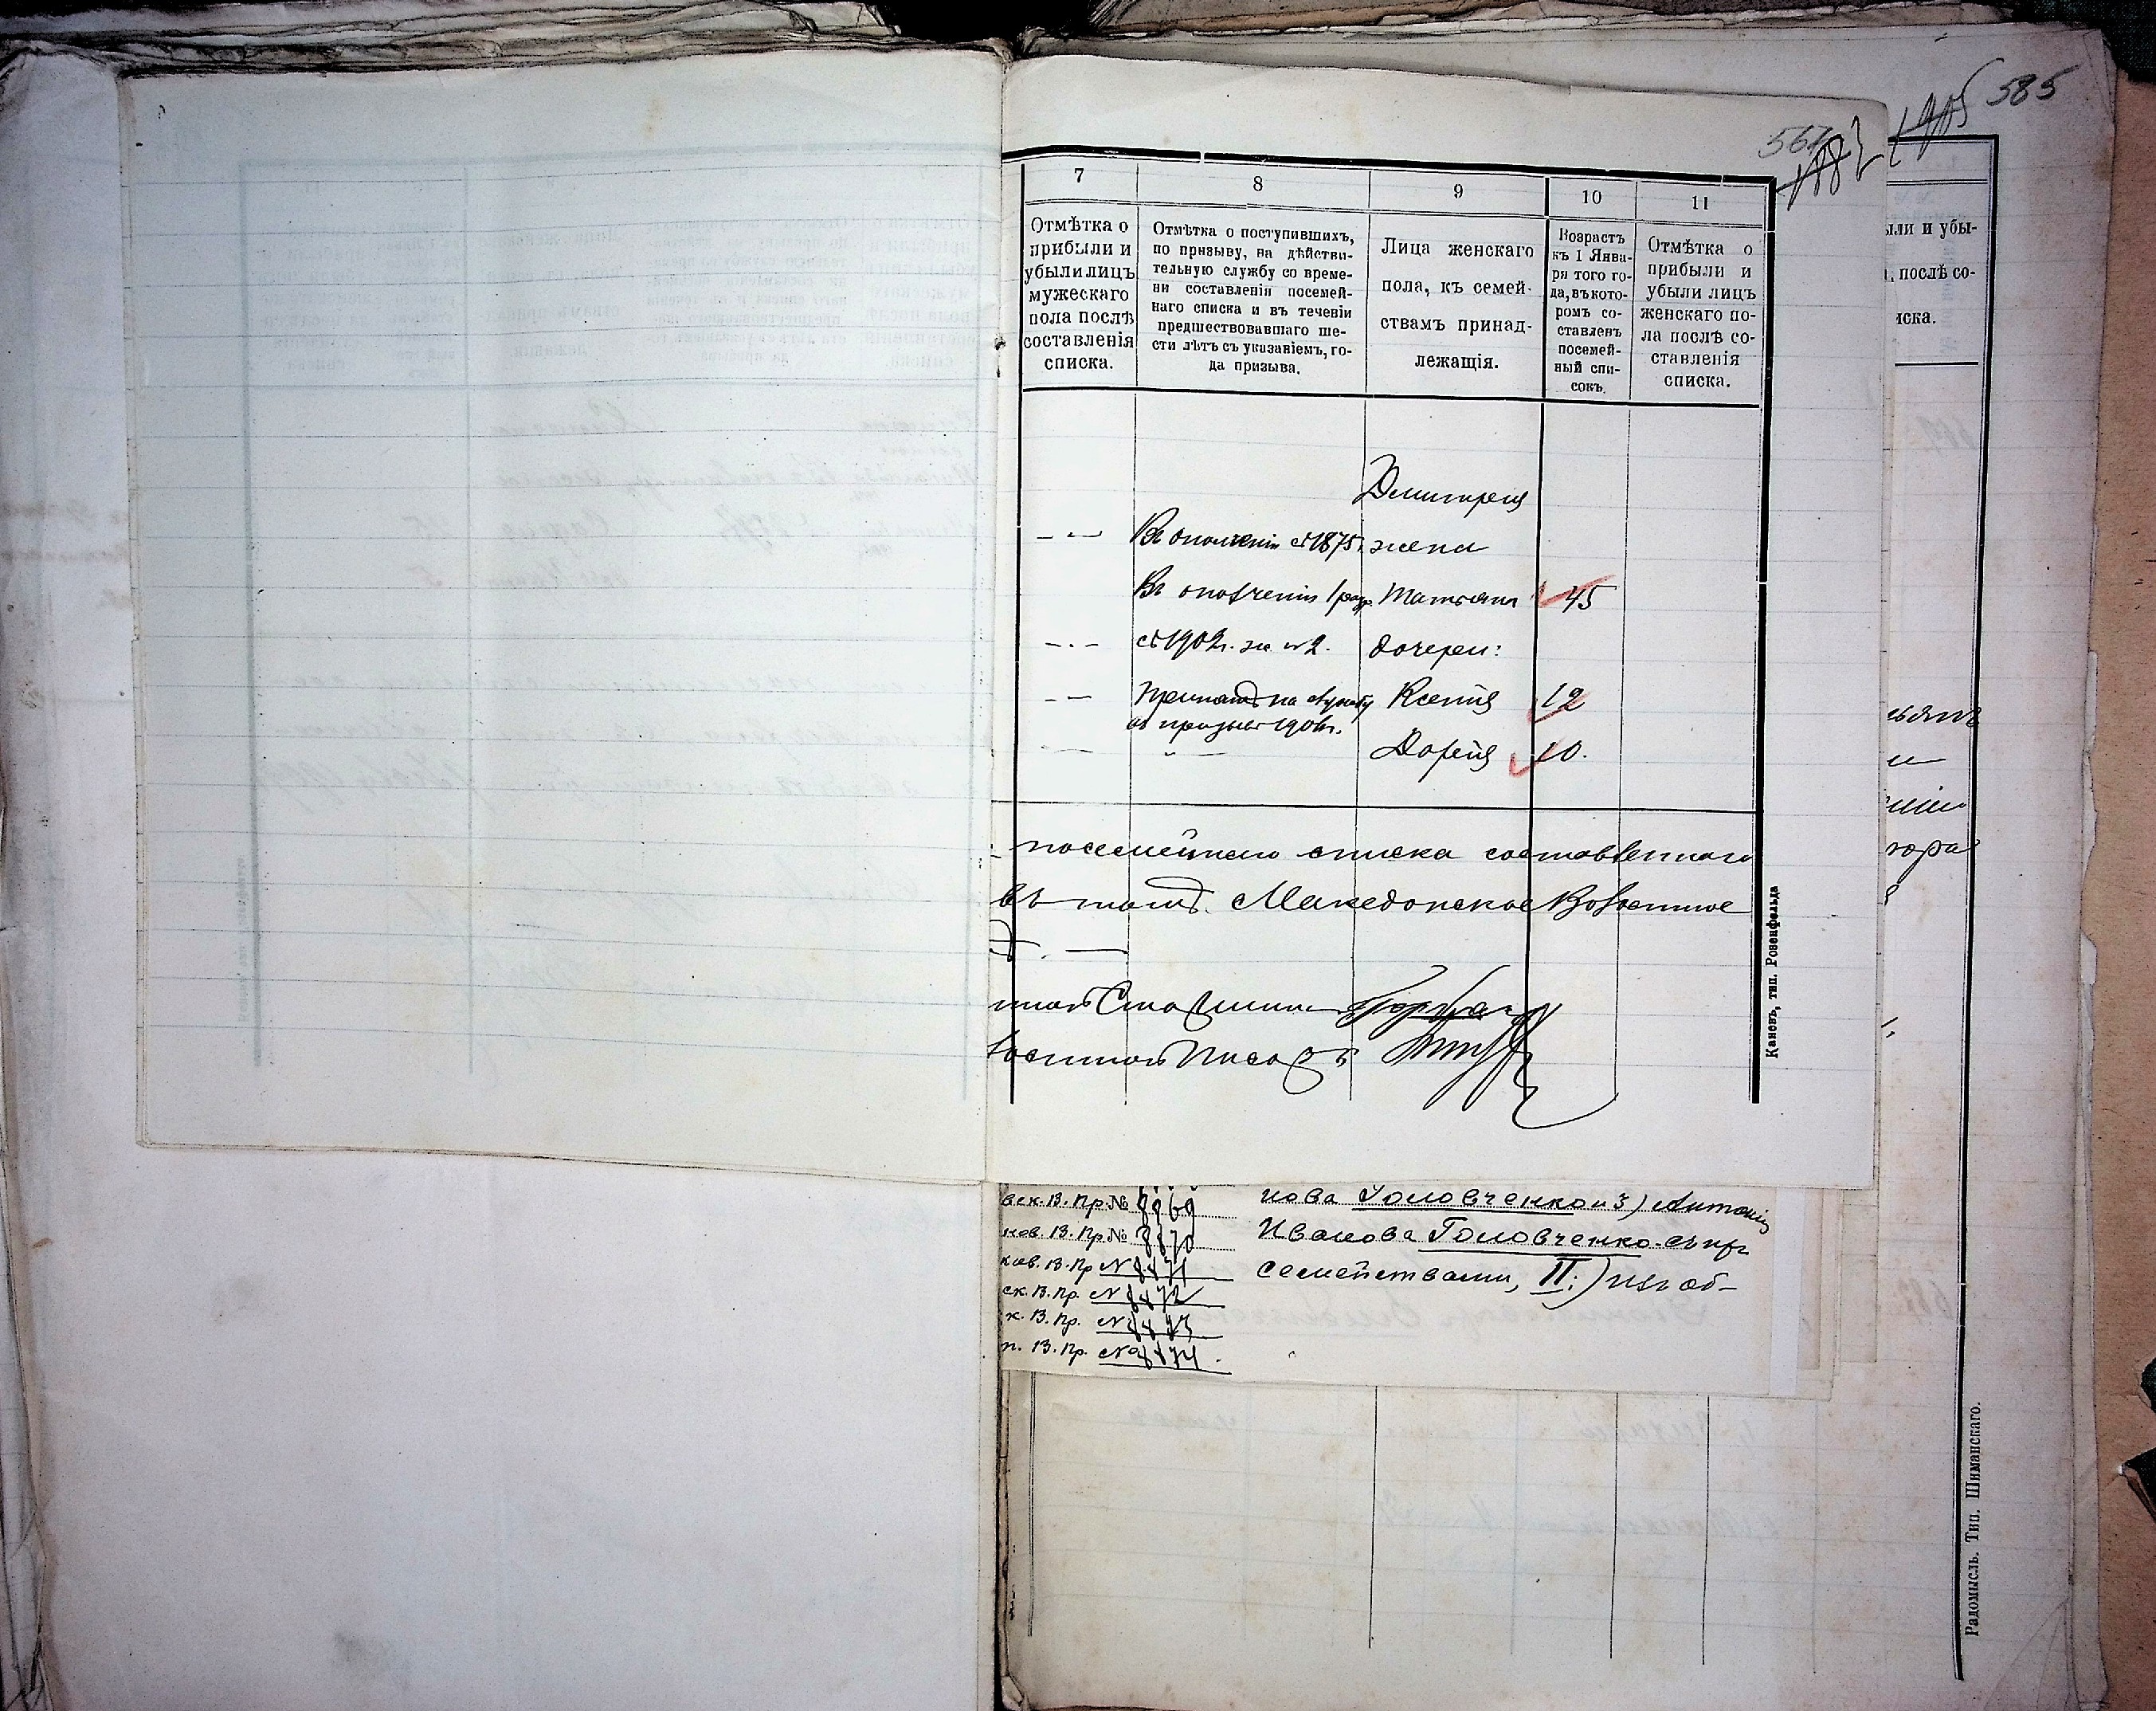 585
7
8
9
10
11
Отмѣтка о
прибыли и
убыли лицъ
мужескаго
пола послѣ
составленія
списка.
Отмѣтка о поступившихъ,
по призыву, на дѣйстви-
тельную службу со време-
ни составленія посемей-
наго списка и въ теченіи
предшествовавшаго ше-
сти лѣтъ съ указаніемъ, го-
да призыва.
Лица женскаго
пола, къ семей-
ствамъ принад-
лежащія.
Возрастъ
къ 1 Янва-
ря того го-
да, въ кото-
ромъ со-
ставленъ
посемей-
ный спи-
сокъ.
Отмѣтка о
прибыли и
убыли лицъ
женскаго по-
ла послѣ со-
ставленія
списка.
ыли и убы-
, послѣ со-
иска.
Дмитрія
Въ ополченіи съ 1875 г. жена
Въ ополченіи 1 разр. Татьяна 45
съ 1902 г. за № 2. дочери:
Принятъ на службу Ксенія 12
въ призывъ 190
Дарія 10.
посемейнаго списка составленнаго
въ томъ. Македонское Волостное
тной Старшина
лостной Писарь
Каневъ, тип. Розенфельда
век. В. Пр. № 8869
нов. В. Пр № 8870
ков. В. Пр № 8871
ск. В. Пр. № 8872
к. В. Пр. № 8873
п. В. Пр. № 8874.
нова Головченко и 3) Антонія
Иванова Головченко съ ихъ
семействами, II:) изъ об-
Радомысль. Тип. Шиманскаго.